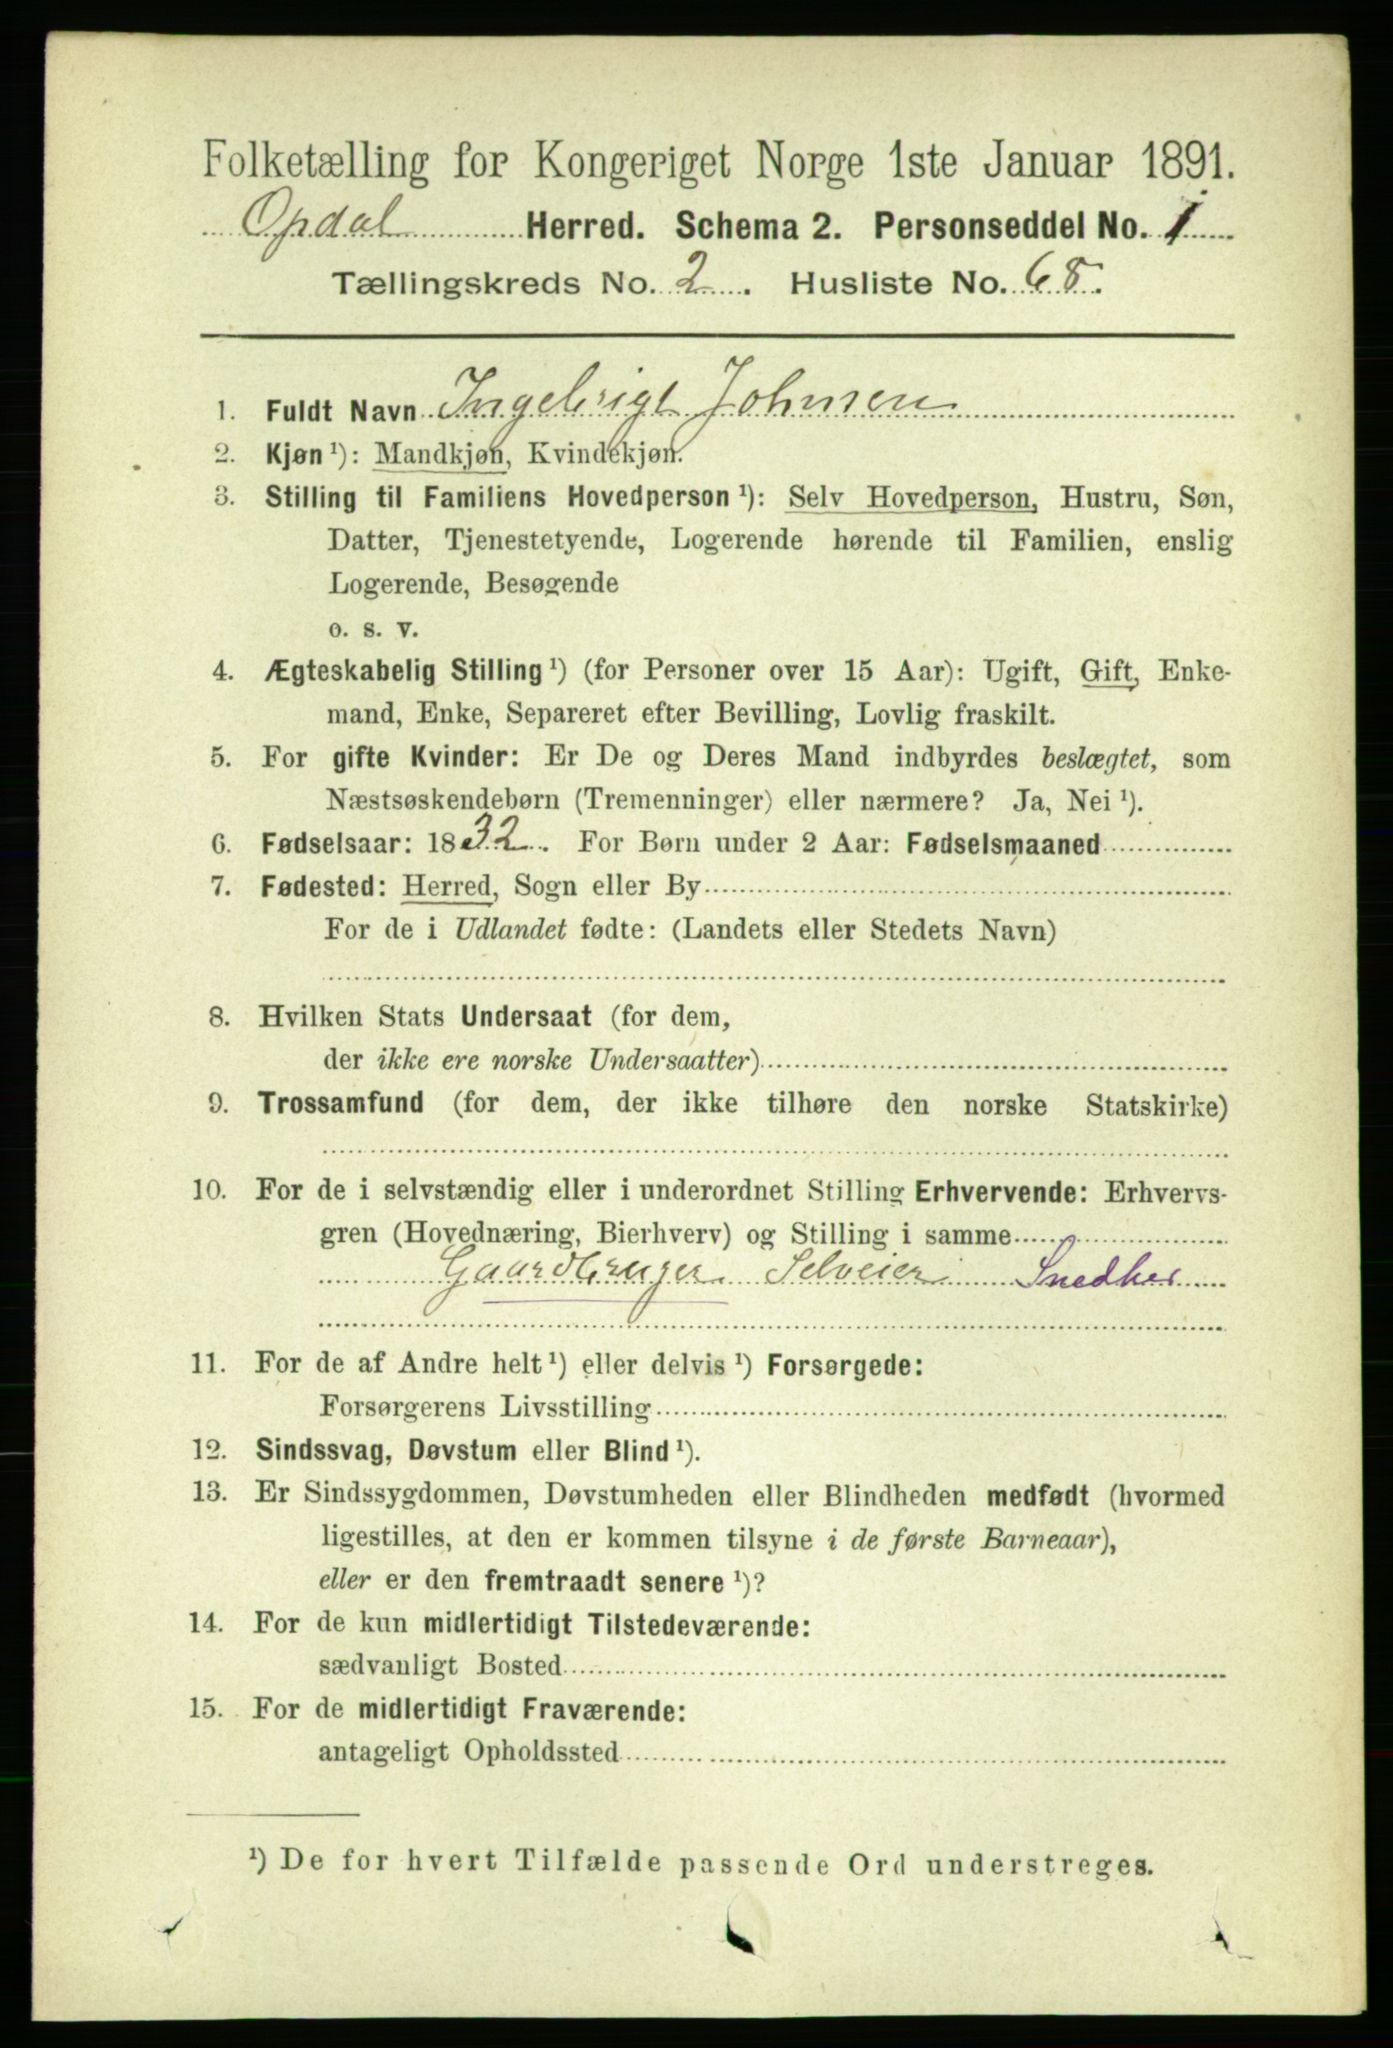 Folketælling for Kongeriget Norge 1ste Januar 1891.
Opdal Herred. Schema 2. Personseddel No. 1
Tællingskreds No. 2. Husliste No. 68.
1. Fuldt Navn Ingebrigt Johnsen
2. Kjøn ¹): Mandkjøn, Kvindekjøn.
3. Stilling til Familiens Hovedperson ¹): Selv Hovedperson, Hustru, Søn,
Datter, Tjenestetyende, Logerende hørende til Familien, enslig
Logerende, Besøgende
o. s. v.
4. Ægteskabelig Stilling ¹) (for Personer over 15 Aar): Ugift, Gift, Enke-
mand, Enke, Separeret efter Bevilling, Lovlig fraskilt.
5. For gifte Kvinder: Er De og Deres Mand indbyrdes beslægtet, som
Næstsøskendebørn (Tremenninger) eller nærmere? Ja, Nei ¹).
6. Fødselsaar: 1832. For Børn under 2 Aar: Fødselsmaaned
7. Fødested: Herred, Sogn eller By
For de i Udlandet fødte: (Landets eller Stedets Navn)
8. Hvilken Stats Undersaat (for dem,
der ikke ere norske Undersaatter)
9. Trossamfund (for dem, der ikke tilhøre den norske Statskirke)
10. For de i selvstændig eller i underordnet Stilling Erhvervende: Erhvervs-
gren (Hovednæring, Bierhverv) og Stilling i samme
Gaardbruger Selveier Snedker
11. For de af Andre helt ¹) eller delvis ¹) Forsørgede:
Forsørgerens Livsstilling
12. Sindssvag, Døvstum eller Blind ¹).
13. Er Sindssygdommen, Døvstumheden eller Blindheden medfødt (hvormed
ligestilles, at den er kommen tilsyne i de første Barneaar),
eller er den fremtraadt senere ¹)?
14. For de kun midlertidigt Tilstedeværende:
sædvanligt Bosted
15. For de midlertidigt Fraværende:
antageligt Opholdssted
¹) De for hvert Tilfælde passende Ord understreges.